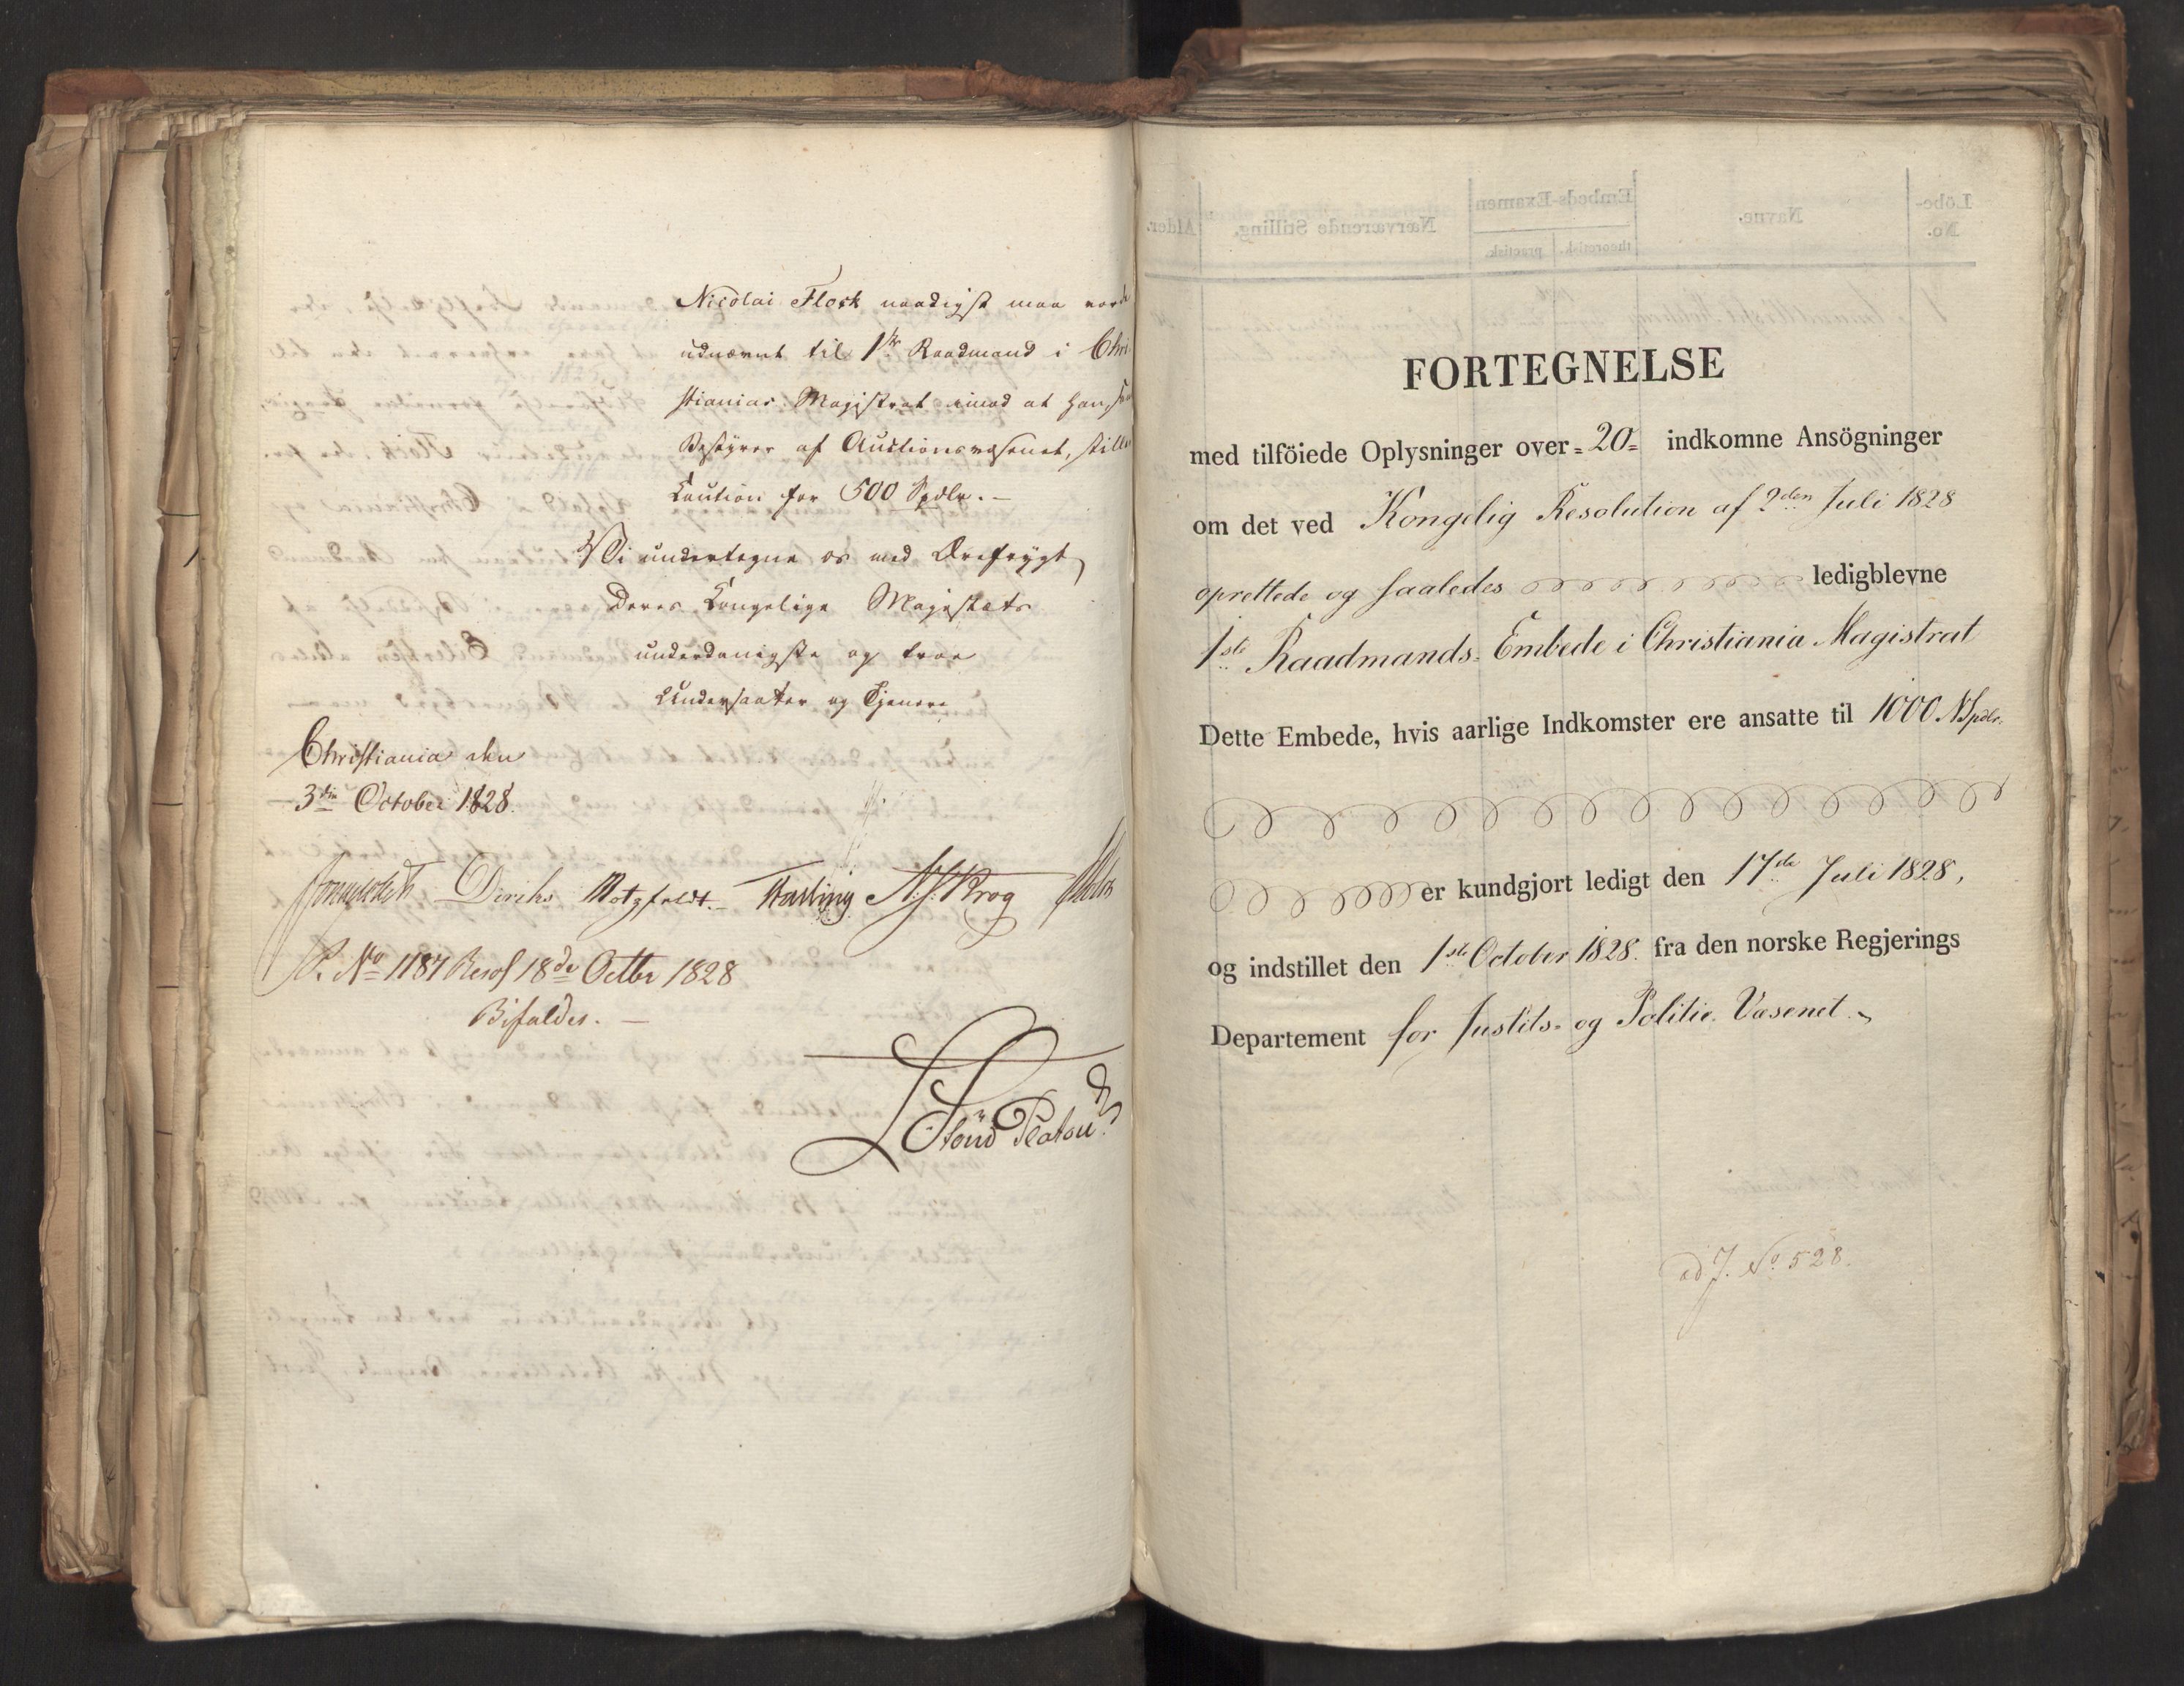 Nicolai Flock naadigst maa vorde
udnævnt til 1ste Raadmand i Chri
stianias Magistrat imod at han, som
Bestyrer af Auctionsvæsenet, stiller
Caution for 500 Spdlr. —
Vi undertegne os med Ærefrygt,
Deres Kongelige Majestæts
underdanigste og troe
Undersaatter og Tjenere
Christiania den
3die October 1828.
Diriks Motzfeldt. N. J. Krog
P. No 1187 Resol 18de Octbr 1828
Bifaldes. —
Löbe-No. Navne. Embeds-Examen theoretisk. practisk. Nærværende Stilling. Alder.
FORTEGNELSE
med tilföiede Oplysninger over = 20 = indkomne Ansögninger
om det ved Kongelig Resolution af 2den Juli 1828
oprettede og saaledes ledigblevne
1ste Raadmands-Embede i Christiania Magistrat
Dette Embede, hvis aarlige Indkomster ere ansatte til 1000 NSpdlr.
er kundgjort ledigt den 17de Juli 1828,
og indstillet den 1ste October 1828. fra den norske Regjerings
Departement for Justits- og Politie-Væsenet.
ad J. No 528.